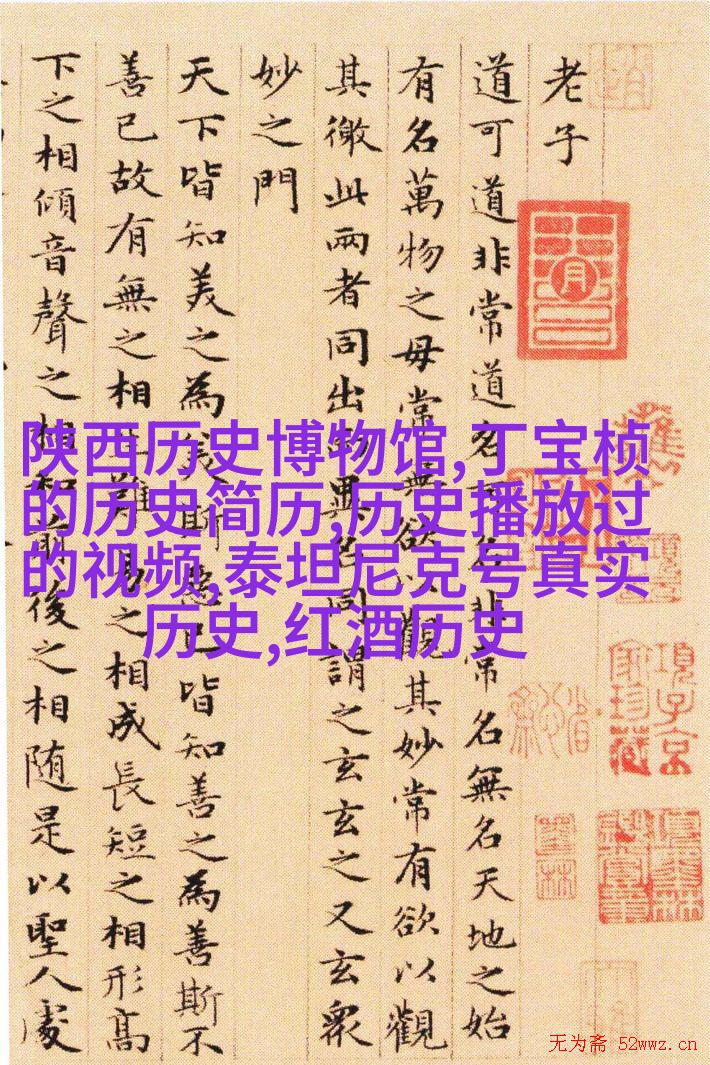 老子
道可道非常道名可名非常名無名天地之始
有名萬物之母常無欲以觀其妙常有欲以觀
其徼此兩者同出而異名同謂之玄玄之又玄衆
妙之門
天下皆知美之為美斯惡已皆知善之為善斯不
善已故有無之相生難易之相成長短之相形高
下之相傾音聲之相和前後之相随是以聖人處
陕西历史博物馆,丁宝桢
的历史简历,历史播放过
的视频,泰坦尼克号真实
历史,红酒历史
項子京
家珍藏
无为斋 52wwz.cn